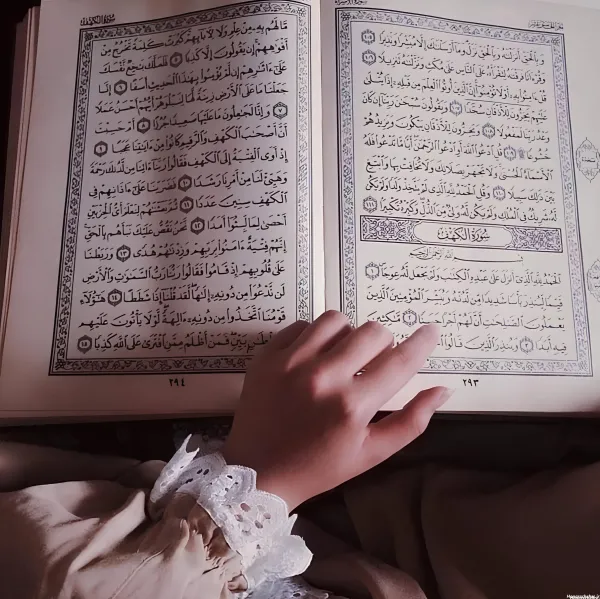 وَبِٱلْحَقِّ أَنزَلْنَٰهُ وَبِٱلْحَقِّ نَزَلَ وَمَآ أَرْسَلْنَٰكَ إِلَّا مُبَشِّرًا وَنَذِيرًا ١٠٥
وَقُرْءَانًا فَرَقْنَٰهُ لِتَقْرَأَهُۥ عَلَى ٱلنَّاسِ عَلَىٰ مُكْثٍ وَنَزَّلْنَٰهُ تَنزِيلًا ١٠٦
قُلْ ءَامِنُوا۟ بِهِۦٓ أَوْ لَا تُؤْمِنُوٓا۟ إِنَّ ٱلَّذِينَ أُوتُوا۟ ٱلْعِلْمَ مِن قَبْلِهِۦٓ إِذَا يُتْلَىٰ
عَلَيْهِمْ يَخِرُّونَ لِلْأَذْقَانِ سُجَّدًا ١٠٧ وَيَقُولُونَ سُبْحَٰنَ رَبِّنَآ إِن كَانَ
وَعْدُ رَبِّنَا لَمَفْعُولًا ١٠٨ وَيَخِرُّونَ لِلْأَذْقَانِ يَبْكُونَ وَيَزِيدُهُمْ
خُشُوعًا ١٠٩ قُلِ ٱدْعُوا۟ ٱللَّهَ أَوِ ٱدْعُوا۟ ٱلرَّحْمَٰنَ أَيًّا مَّا تَدْعُوا۟ فَلَهُ
ٱلْأَسْمَآءُ ٱلْحُسْنَىٰ وَلَا تَجْهَرْ بِصَلَاتِكَ وَلَا تُخَافِتْ بِهَا وَٱبْتَغِ
بَيْنَ ذَٰلِكَ سَبِيلًا ١١٠ وَقُلِ ٱلْحَمْدُ لِلَّهِ ٱلَّذِى لَمْ يَتَّخِذْ وَلَدًا وَلَمْ يَكُن
لَّهُۥ شَرِيكٌ فِى ٱلْمُلْكِ وَلَمْ يَكُن لَّهُۥ وَلِىٌّ مِّنَ ٱلذُّلِّ وَكَبِّرْهُ تَكْبِيرًۢا ١١١
سُورَةُ الكَهْفِ
بِسْمِ ٱللَّهِ ٱلرَّحْمَٰنِ ٱلرَّحِيمِ
ٱلْحَمْدُ لِلَّهِ ٱلَّذِىٓ أَنزَلَ عَلَىٰ عَبْدِهِ ٱلْكِتَٰبَ وَلَمْ يَجْعَل لَّهُۥ عِوَجَا ١
قَيِّمًا لِّيُنذِرَ بَأْسًا شَدِيدًا مِّن لَّدُنْهُ وَيُبَشِّرَ ٱلْمُؤْمِنِينَ ٱلَّذِينَ
يَعْمَلُونَ ٱلصَّٰلِحَٰتِ أَنَّ لَهُمْ أَجْرًا حَسَنًا ٢ مَّٰكِثِينَ
فِيهِ أَبَدًا ٣ وَيُنذِرَ ٱلَّذِينَ قَالُوا۟
٢٩٣
سُورَةُ الكَهْفِ
مَّا لَهُم بِهِۦ مِنْ عِلْمٍ وَلَا لِـَٔابَآئِهِمْ كَبُرَتْ كَلِمَةً تَخْرُجُ مِنْ
أَفْوَٰهِهِمْ إِن يَقُولُونَ إِلَّا كَذِبًا ٥ فَلَعَلَّكَ بَٰخِعٌ نَّفْسَكَ
عَلَىٰٓ ءَاثَٰرِهِمْ إِن لَّمْ يُؤْمِنُوا۟ بِهَٰذَا ٱلْحَدِيثِ أَسَفًا ٦ إِنَّا
جَعَلْنَا مَا عَلَى ٱلْأَرْضِ زِينَةً لَّهَا لِنَبْلُوَهُمْ أَيُّهُمْ أَحْسَنُ عَمَلًا
٧ وَإِنَّا لَجَٰعِلُونَ مَا عَلَيْهَا صَعِيدًا جُرُزًا ٨ أَمْ حَسِبْتَ
أَنَّ أَصْحَٰبَ ٱلْكَهْفِ وَٱلرَّقِيمِ كَانُوا۟ مِنْ ءَايَٰتِنَا عَجَبًا ٩
إِذْ أَوَى ٱلْفِتْيَةُ إِلَى ٱلْكَهْفِ فَقَالُوا۟ رَبَّنَآ ءَاتِنَا مِن لَّدُنكَ رَحْمَةً
وَهَيِّئْ لَنَا مِنْ أَمْرِنَا رَشَدًا ١٠ فَضَرَبْنَا عَلَىٰٓ ءَاذَانِهِمْ فِى
ٱلْكَهْفِ سِنِينَ عَدَدًا ١١ ثُمَّ بَعَثْنَٰهُمْ لِنَعْلَمَ أَىُّ ٱلْحِزْبَيْنِ
أَحْصَىٰ لِمَا لَبِثُوٓا۟ أَمَدًا ١٢ نَّحْنُ نَقُصُّ عَلَيْكَ نَبَأَهُم بِٱلْحَقِّ
إِنَّهُمْ فِتْيَةٌ ءَامَنُوا۟ بِرَبِّهِمْ وَزِدْنَٰهُمْ هُدًى ١٣ وَرَبَطْنَا
عَلَىٰ قُلُوبِهِمْ إِذْ قَامُوا۟ فَقَالُوا۟ رَبُّنَا رَبُّ ٱلسَّمَٰوَٰتِ وَٱلْأَرْضِ
لَن نَّدْعُوَا۟ مِن دُونِهِۦٓ إِلَٰهًا لَّقَدْ قُلْنَآ إِذًا شَطَطًا ١٤ هَٰٓؤُلَآءِ
قَوْمُنَا ٱتَّخَذُوا۟ مِن دُونِهِۦٓ ءَالِهَةً لَّوْلَا يَأْتُونَ عَلَيْهِم
بَيِّنٍ فَمَنْ أَظْلَمُ مِمَّنِ ٱفْتَرَىٰ عَلَى ٱللَّهِ كَذِبًا ١٥
٢٩٤